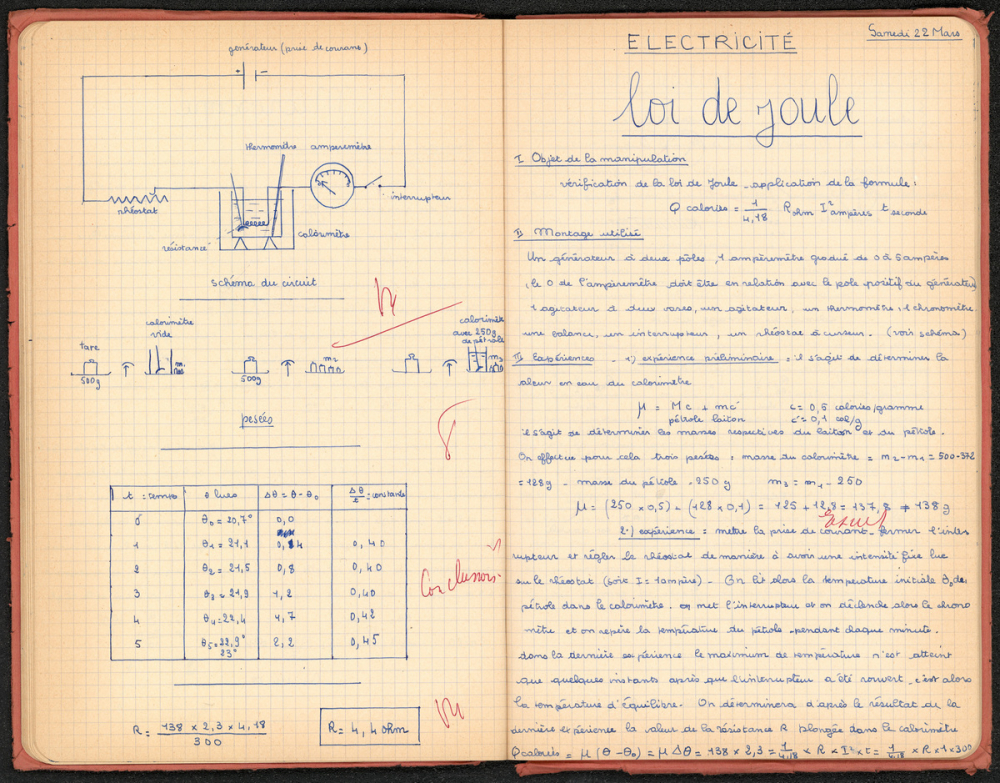 générateur (prise de courant)
thermomètre ampèremètre
rhéostat
interrupteur
résistance
calorimètre
schéma du circuit
tare
calorimètre
vide
500g
m1
500g
m2
calorimètre
avec 250g
de pétrole
m3
pesées
t = temps θ lues Δθ = θ - θ0 Δθ/t = constante
0 θ0 = 20,7° 0,0
1 θ1 = 21,1 0,4 0,40
2 θ2 = 21,5 0,8 0,40
3 θ3 = 21,9 1,2 0,40
4 θ4 = 22,4 1,7 0,42
5 θ5 = 22,9° 2,2 0,45
23°
Conclusions
R = 138 x 2,3 x 4,18 / 300
R = 4,4 ohm
Samedi 22 Mars
ELECTRICITÉ
loi de Joule
I Objet de la manipulation
vérification de la loi de Joule - application de la formule :
Q calories = 1/4,18 R ohm I² ampères t seconde
II Montage utilisé
Un générateur à deux pôles, 1 ampèremètre gradué de 0 à 5 ampères
, le 0 de l'ampèremètre doit être en relation avec le pole positif du générateur
1 agitateur à deux vases, un agitateur, un thermomètre, 1 chronomètre
une balance, un interrupteur, un rhéostat à curseur. (voir schéma)
III Expériences 1) expérience préliminaire = il s'agit de déterminer la
valeur en eau du calorimètre
μ = Mc + mc' c = 0,5 calories/gramme
pétrole laiton c' = 0,1 cal/g
il s'agit de déterminer les masses respectives du laiton et du pétrole.
On effectue pour cela trois pesées = masse du calorimètre = m2 - m1 = 500-372
= 128g - masse du pétrole - 250g m3 = m1 - 250
μ = (250 x 0,5) + (128 x 0,1) = 125 + 12,8 = 137,8 ⇒ 138g
2) expérience = mettre la prise de courant - fermer l'inter
rupteur et régler le rhéostat de manière à avoir une intensité fixe lue
sur le rhéostat (soit I = 1 ampère) - On lit alors la température initiale θ0 de
pétrole dans le calorimètre. on met l'interrupteur et on déclenche alors le chrono
mètre et on repère la température du pétrole pendant chaque minute.
dans la dernière expérience le maximum de température n'est atteint
que quelques instants après que l'interrupteur a été rouvert, c'est alors
la température d'équilibre. On déterminera d'après le résultat de la
dernière expérience la valeur de la résistance R plongée dans le calorimètre
Q calories = μ (θ - θ0) = μ Δθ = 138 x 2,3 = 1/4,18 x R x I² x t = 1/4,18 x R x 1 x 300